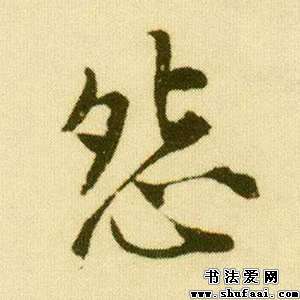 怨
书法爱网
www.shufaai.com